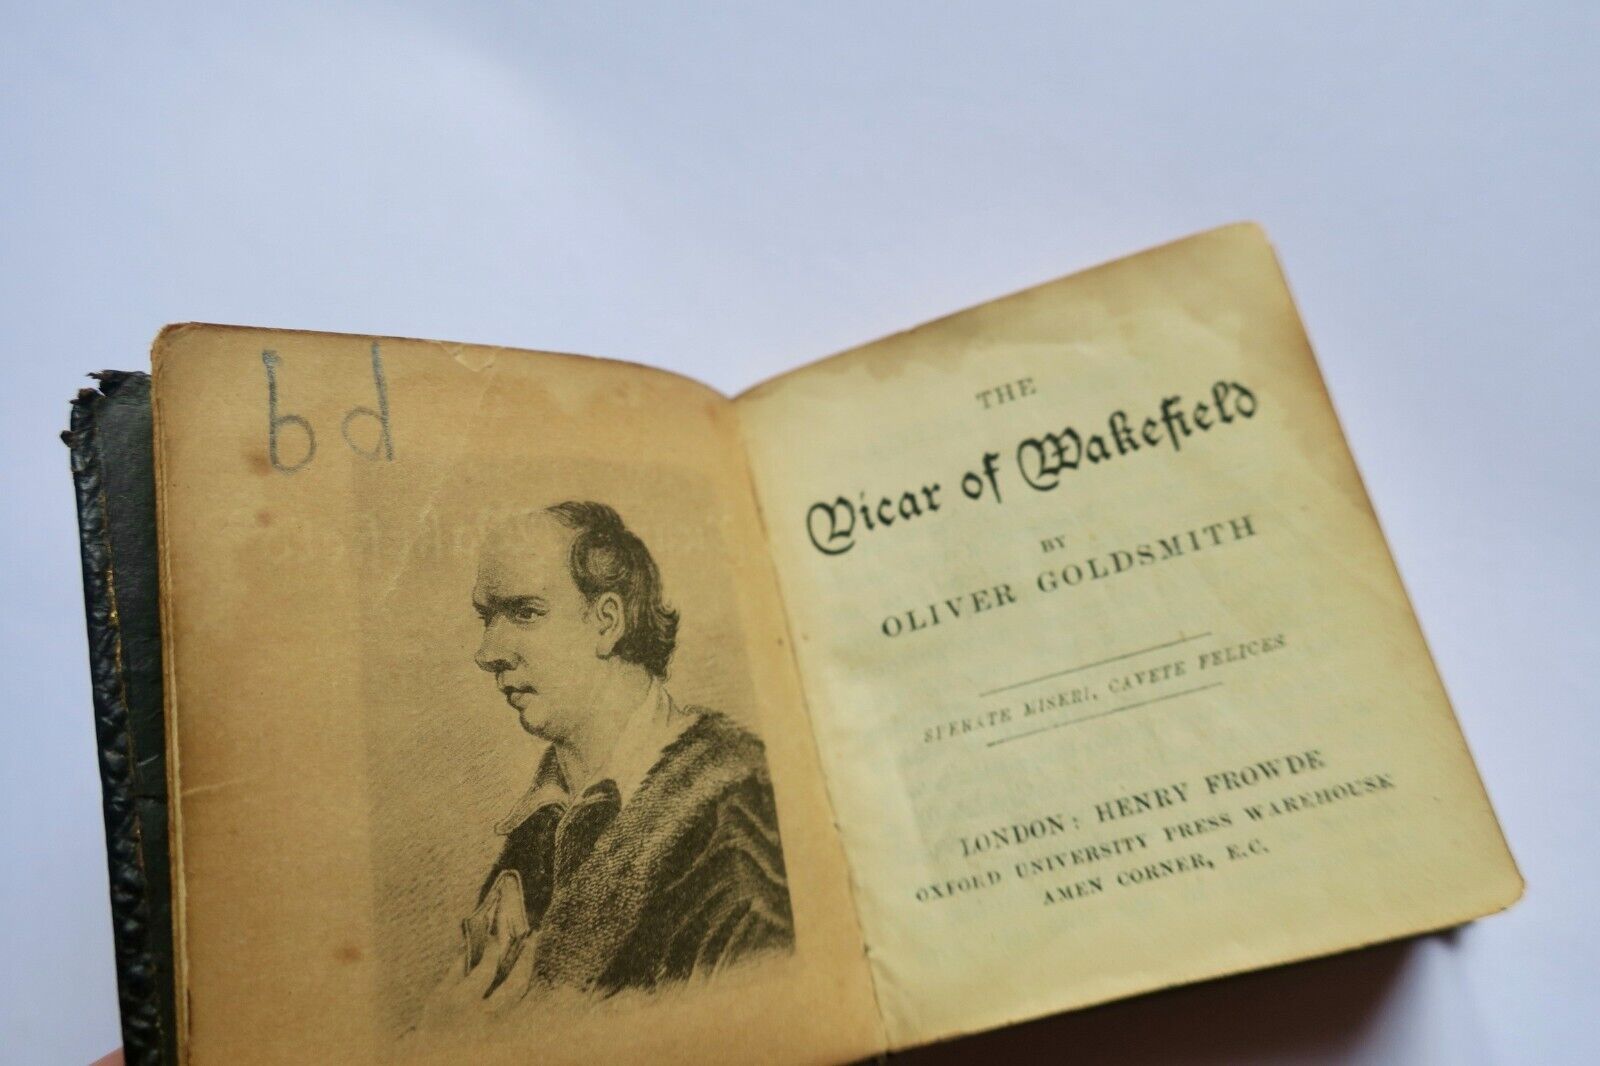 6d
THE
Vicar of Wakefield
BY
OLIVER GOLDSMITH
SPERATE MISERI, CAVETE FELICES
LONDON: HENRY FROWDE
OXFORD UNIVERSITY PRESS WAREHOUSE
AMEN CORNER, E.C.